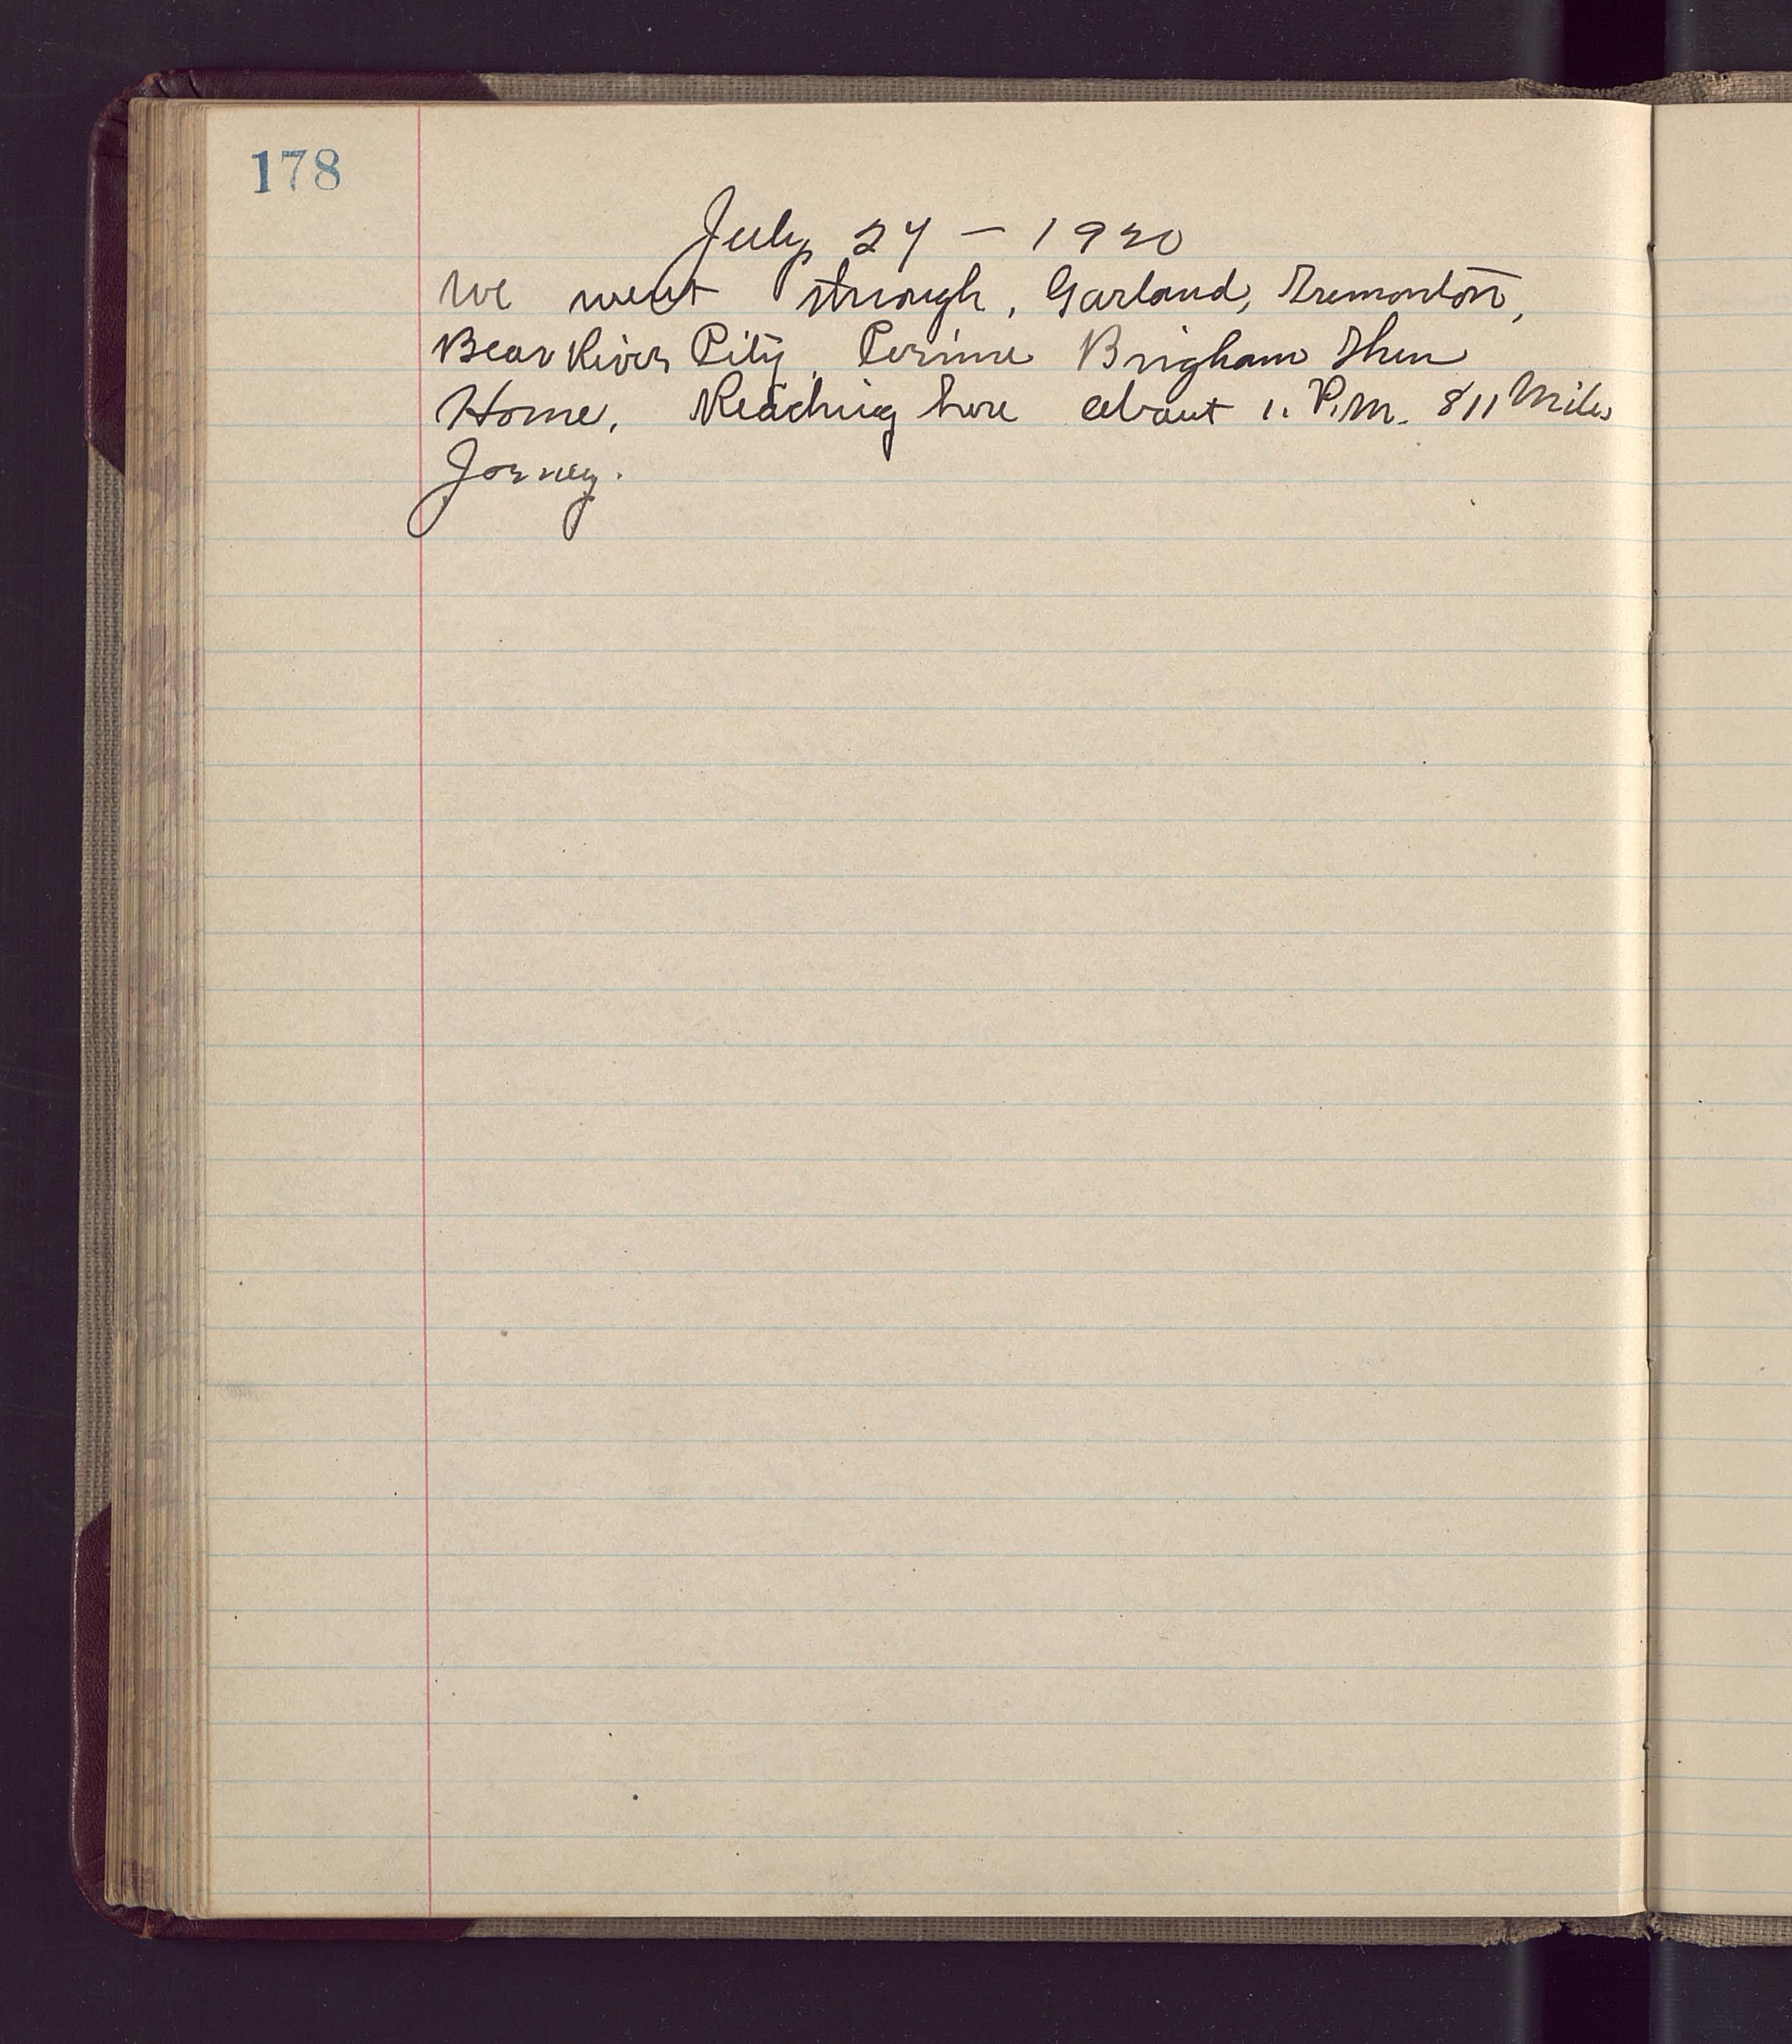 178
July 24 - 1920
We went through, Garland, Tremonton,
Bear River City, Corinne Brigham Then
Home, Reaching here about 1. P.M. 811 Miles
Jorney.